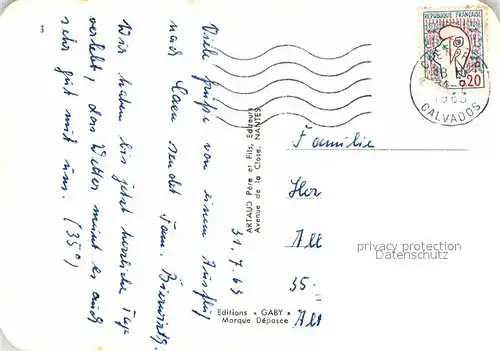 3
Viele Grüße von einem Ausflug
nach Caen sendet Fam.
Wir haben bis jetzt herrliche Tage
verlebt, das Wetter meint es auch
sehr gut mit uns. (35°)
31.7.63
ARTAUD Père et Fils, Editeurs
Avenue de la Close, NANTES
Editions « GABY »
Marque Déposée
REPUBLIQUE FRANÇAISE
0,20
CALVADOS
Familie
Alt
35
privacy protection
Datenschutz